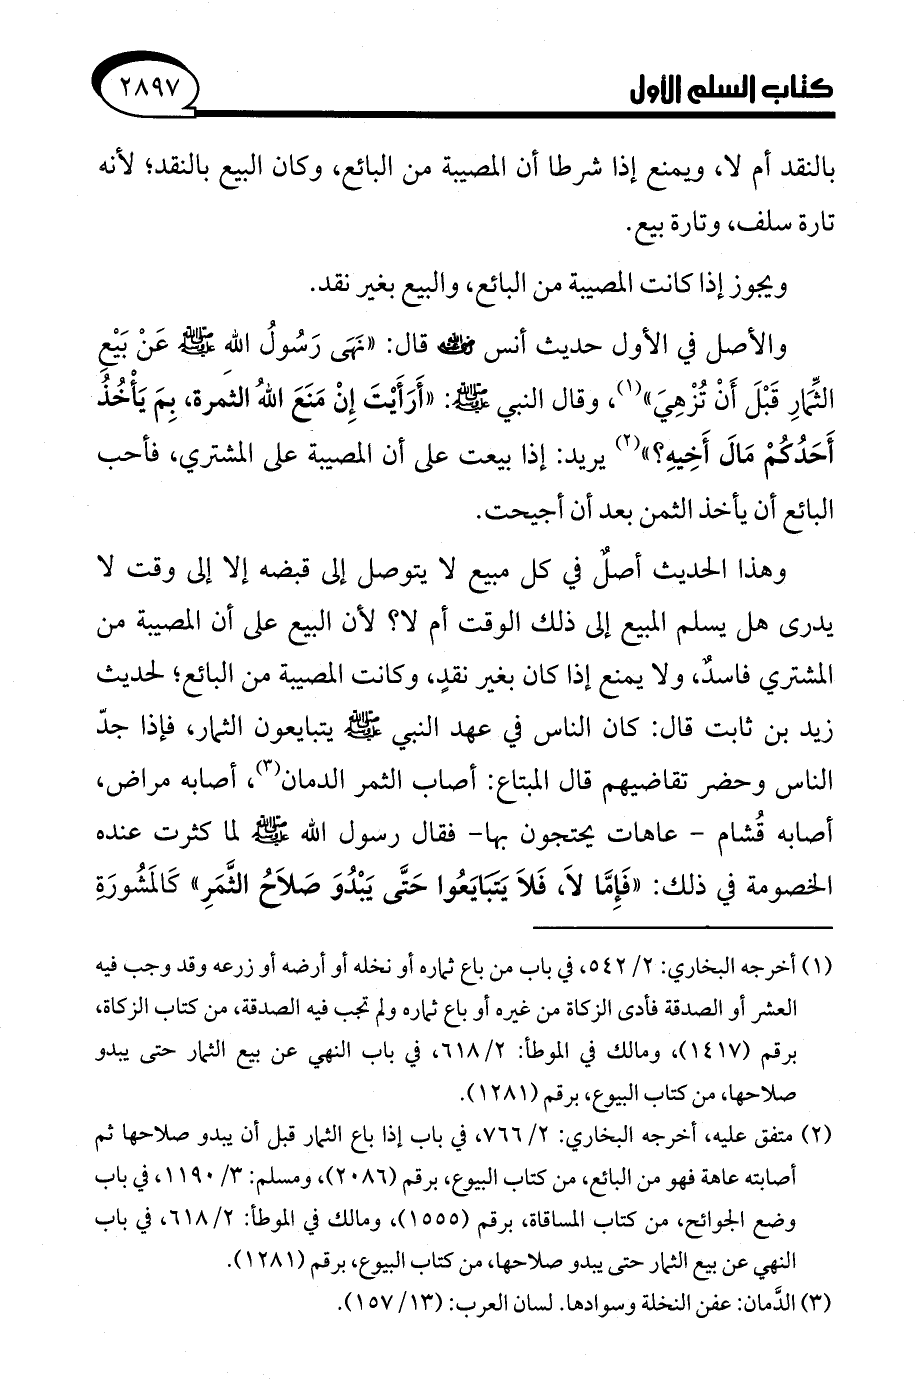 كتاب السلم الأول
٢٨٩٧
بالنقد أم لا، ويمنع إذا شرطا أن المصيبة من البائع، وكان البيع بالنقد؛ لأنه
تارة سلف، وتارة بيع.
ويجوز إذا كانت المصيبة من البائع، والبيع بغير نقد.
والأصل في الأول حديث أنس رضي الله عنه قال: «نَهَى رَسُولُ الله ﷺ عَنْ بَيْعِ
الثِّمَارِ قَبْلَ أَنْ تُزْهِيَ»(١)، وقال النبي ﷺ: «أَرَأَيْتَ إِنْ مَنَعَ اللهُ الثمرة، بِمَ يَأْخُذُ
أَحَدُكُمْ مَالَ أَخِيهِ؟»(٢) يريد: إذا بيعت على أن المصيبة على المشتري، فأحب
البائع أن يأخذ الثمن بعد أن أجيحت.
وهذا الحديث أصلٌ في كل مبيع لا يتوصل إلى قبضه إلا إلى وقت لا
يدرى هل يسلم المبيع إلى ذلك الوقت أم لا؟ لأن البيع على أن المصيبة من
المشتري فاسدٌ، ولا يمنع إذا كان بغير نقدٍ، وكانت المصيبة من البائع؛ لحديث
زيد بن ثابت قال: كان الناس في عهد النبي ﷺ يتبايعون الثمار، فإذا جدّ
الناس وحضر تقاضيهم قال المبتاع: أصاب الثمر الدمان(٣)، أصابه مراض،
أصابه قُشام - عاهات يحتجون بها- فقال رسول الله ﷺ لما كثرت عنده
الخصومة في ذلك: «فَإِمَّا لاَ، فَلاَ يَتَبَايَعُوا حَتَّى يَبْدُوَ صَلاَحُ الثَّمَرِ» كَالمَشُورَةِ
(١) أخرجه البخاري: ٢/ ٥٤٢، في باب من باع ثماره أو نخله أو أرضه أو زرعه وقد وجب فيه
العشر أو الصدقة فأدى الزكاة من غيره أو باع ثماره ولم تجب فيه الصدقة، من كتاب الزكاة،
برقم (١٤١٧)، ومالك في الموطأ: ٢/ ٦١٨، في باب النهي عن بيع الثمار حتى يبدو
صلاحها، من كتاب البيوع، برقم (١٢٨١).
(٢) متفق عليه، أخرجه البخاري: ٢/ ٧٦٦، في باب إذا باع الثمار قبل أن يبدو صلاحها ثم
أصابته عاهة فهو من البائع، من كتاب البيوع، برقم (٢٠٨٦)، ومسلم: ٣/ ١١٩٠، في باب
وضع الجوائح، من كتاب المساقاة، برقم (١٥٥٥)، ومالك في الموطأ: ٢/ ٦١٨، في باب
النهي عن بيع الثمار حتى يبدو صلاحها، من كتاب البيوع، برقم (١٢٨١).
(٣) الدَّمان: عفن النخلة وسوادها. لسان العرب: (١٣/ ١٥٧).